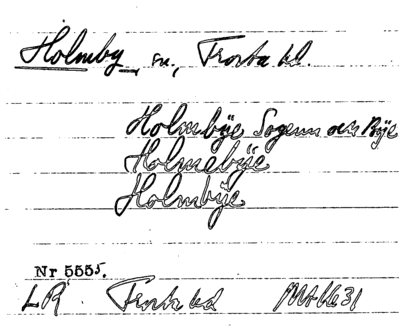 Holmby, sn., Frosta hd.
Holmbÿe Sogenn och Bÿe
Holmebÿe
Holmbÿe
Nr 5555.
LR Frosta hd